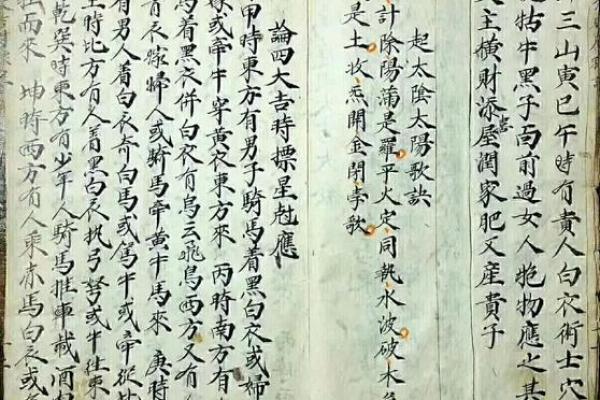 三山寅巳午時有貴人白衣術士穴
牯牛黑子面前過女人抱物應之其
主橫財添屋潤家肥又產貴子
起太陰太陽歌訣
計除陽滿是羅平火定同執水波破木危
是土收炁開金閉孛歌
論四大吉時摽星尅應
甲時東方有男子騎馬着黑白衣或婦
嫁或牽牛穿黃衣東方來 丙時南方有
馬着黑衣併白衣有鳥云飛鳥西方又有
衣嫁婦人或騎馬牽黃牛馬來 庚時
有男人着白衣奇白馬或駕牛或牽從
壬時北方有人着黑白衣执弓弩或牛往東
乾巽時東方有少年人騎馬推車載酒
而來 坤時西方有人乘赤馬白衣或